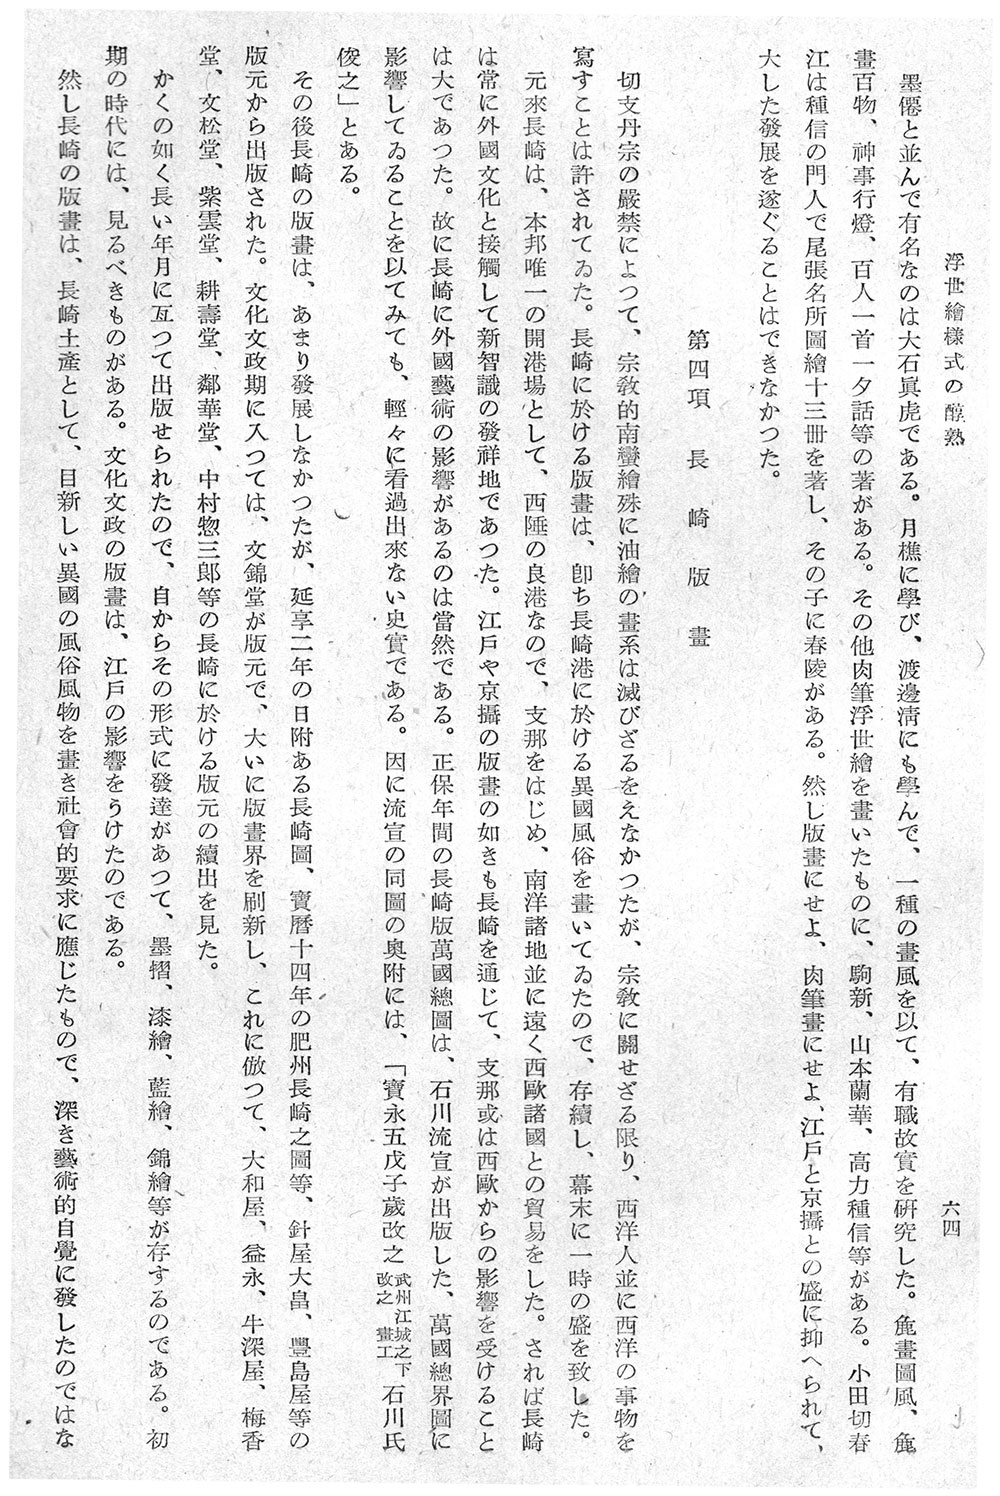 浮世繪樣式の醇熟
六四
墨僊と並んで有名なのは大石眞虎である。月樵に學び、渡邊淸にも學んで、一種の畫風を以て、有職故實を硏究した。麁畫圖風、麁
畫百物、神事行燈、百人一首一夕話等の著がある。その他肉筆浮世繪を畫いたものに、駒新、山本蘭華、高力種信等がある。小田切春
江は種信の門人で尾張名所圖繪十三冊を著し、その子に春陵がある。然し版畫にせよ、肉筆畫にせよ、江戶と京攝との盛に抑へられて、
大した發展を遂ぐることはできなかつた。
第四項　長崎版畫
切支丹宗の嚴禁によつて、宗敎的南蠻繪殊に油繪の畫系は滅びざるをえなかつたが、宗敎に關せざる限り、西洋人並に西洋の事物を
寫すことは許されてゐた。長崎に於ける版畫は、卽ち長崎港に於ける異國風俗を畫いてゐたので、存續し、幕末に一時の盛を致した。
元來長崎は、本邦唯一の開港場として、西陲の良港なので、支那をはじめ、南洋諸地並に遠く西歐諸國との貿易をした。されば長崎
は常に外國文化と接觸して新智識の發祥地であつた。江戶や京攝の版畫の如きも長崎を通じて、支那或は西歐からの影響を受けること
は大であつた。故に長崎に外國藝術の影響があるのは當然である。正保年間の長崎版萬國總圖は、石川流宣が出版した、萬國總界圖に
影響してゐることを以てみても、輕々に看過出來ない史實である。因に流宣の同圖の奧附には、「寶永五戊子歲改之 武州江城之下改之 畫工 石川氏
俊之」とある。
その後長崎の版畫は、あまり發展しなかつたが、延享二年の日附ある長崎圖、寶曆十四年の肥州長崎之圖等、針屋大畠、豐島屋等の
版元から出版された。文化文政期に入つては、文錦堂が版元で、大いに版畫界を刷新し、これに倣つて、大和屋、益永、牛深屋、梅香
堂、文松堂、紫雲堂、耕壽堂、鄰華堂、中村惣三郎等の長崎に於ける版元の續出を見た。
かくの如く長い年月に亙つて出版せられたので、自からその形式に發達があつて、墨摺、漆繪、藍繪、錦繪等が存するのである。初
期の時代には、見るべきものがある。文化文政の版畫は、江戶の影響をうけたのである。
然し長崎の版畫は、長崎土產として、目新しい異國の風俗風物を畫き社會的要求に應じたもので、深き藝術的自覺に發したのではな